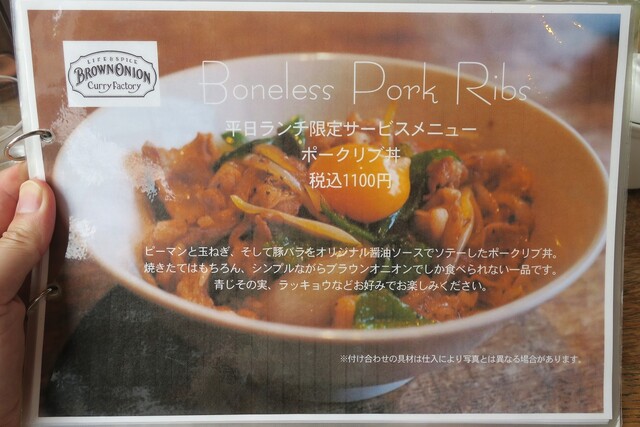 LIFE & SPICE
BROWN ONION
Curry Factory
Boneless Pork Ribs
平日ランチ限定サービスメニュー
ポークリブ丼
税込1100円
ピーマンと玉ねぎ、そして豚バラをオリジナル醤油ソースでソテーしたポークリブ丼。
焼きたてはもちろん、シンプルながらブラウンオニオンでしか食べられない一品です。
青じその実、ラッキョウなどお好みでお楽しみください。
※付け合わせの具材は仕入により写真とは異なる場合があります。